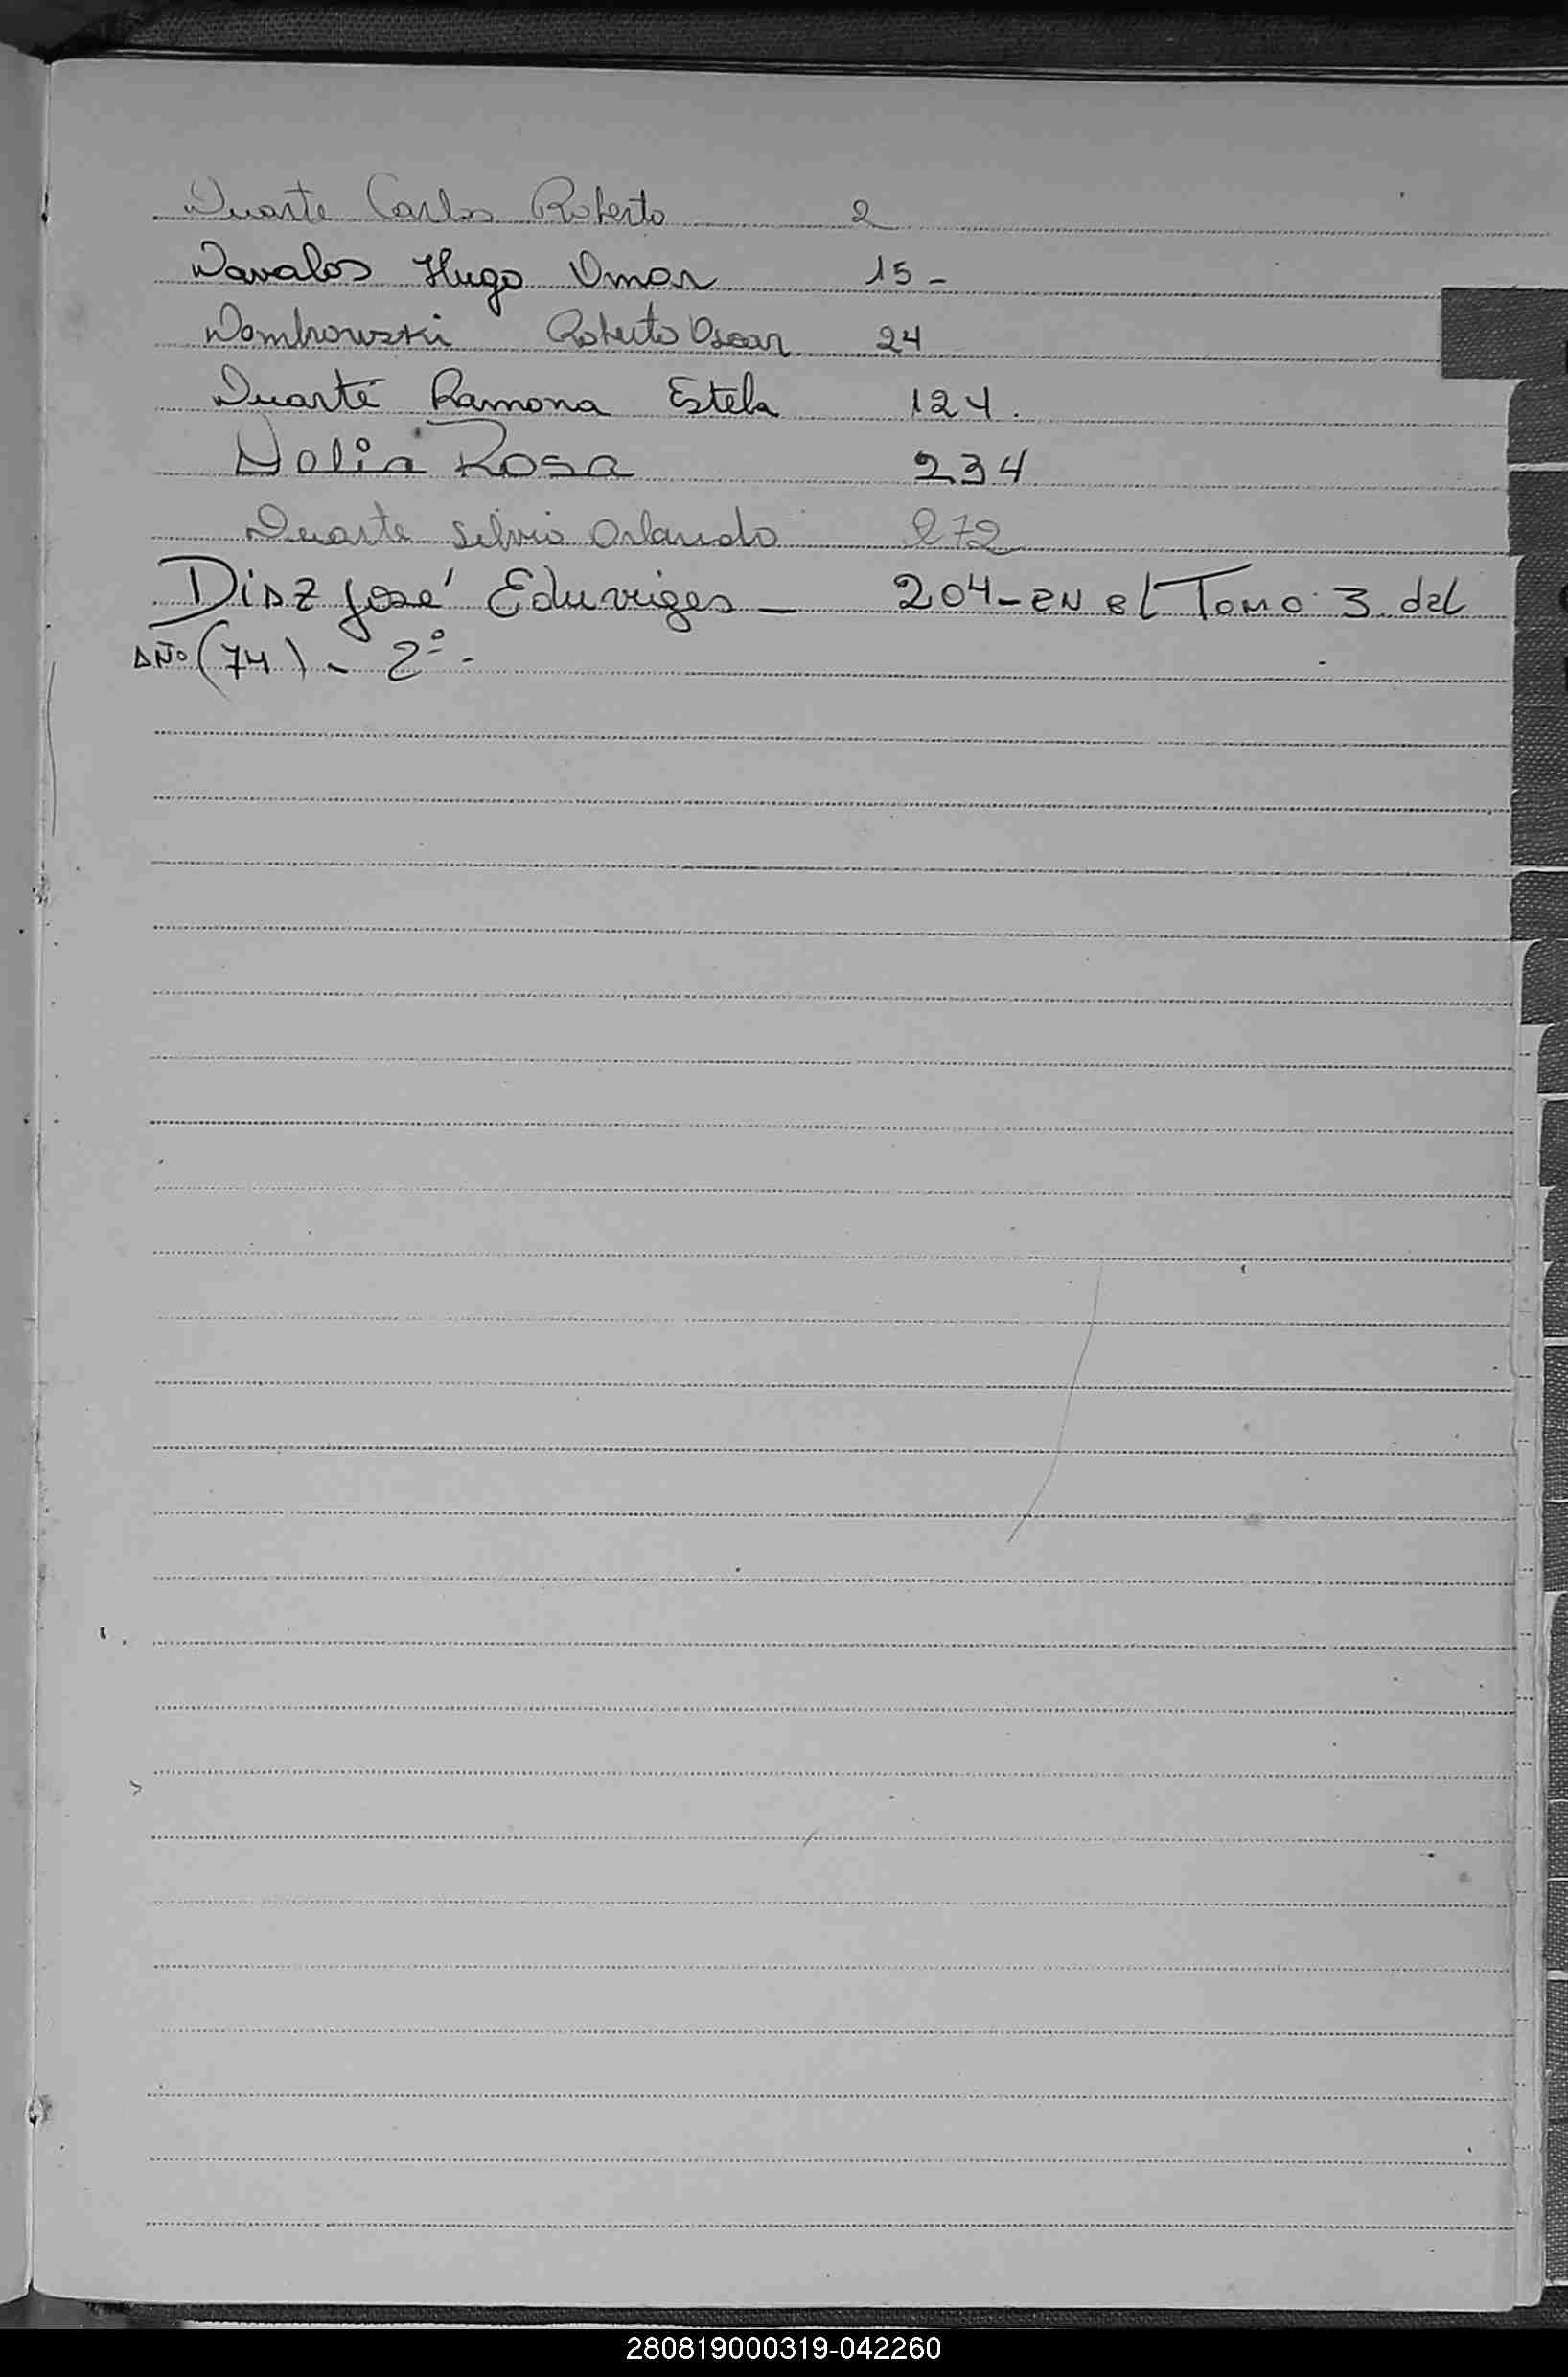 Duarte Carlos Roberto 2
Davalos Hugo Omar 15-
Dombrowski Roberto Oscar 24
Duarte Ramona Estela 124.
Dolia Rosa 234
Duarte Silvio Orlando 272
Diaz José Eduviges - 204-EN el Tomo 3 del
AÑo (74) - 2º-
280819000319-042260